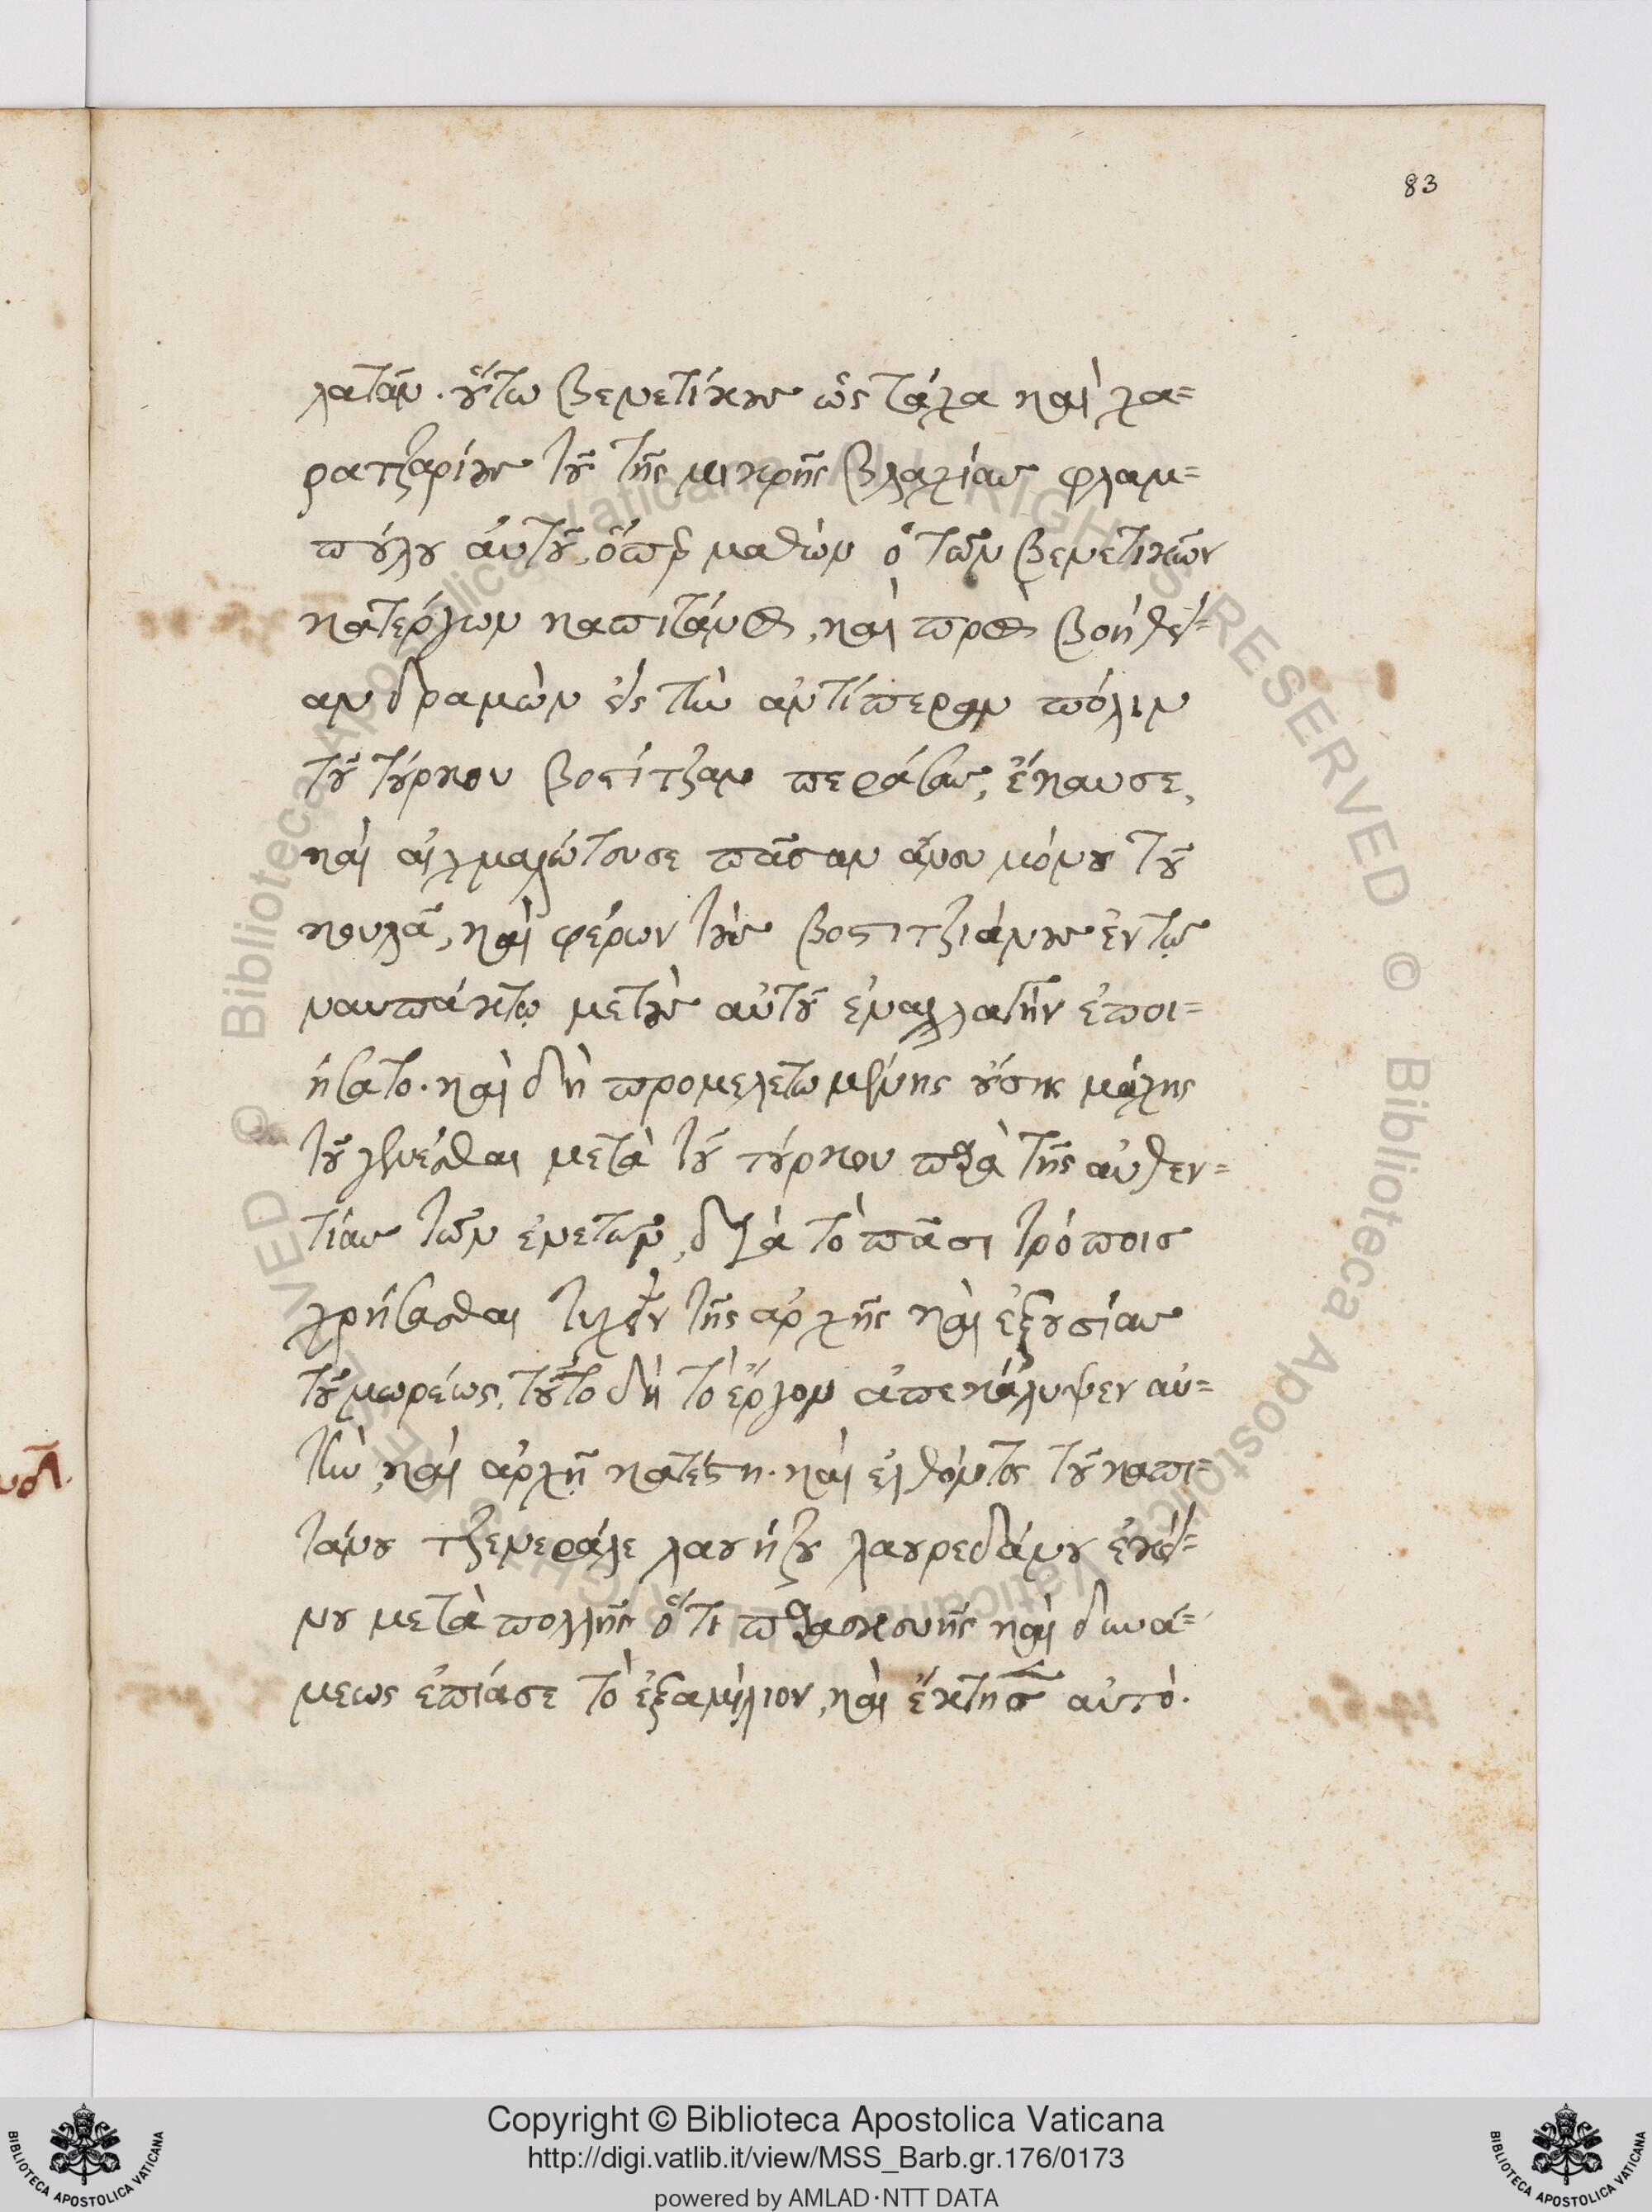 83
λατᾶν. οὕτω βενετίκους ὡς τάχα καὶ χα=
ρατζαρίους τοῦ τῆς μικρῆς βλαχίας φλαμ=
πούλου αὐτοῦ, ὅπερ μαθὼν ὁ τῶν βενετικῶν
κατέργων καπιτάνος, καὶ πρὸς βοήθειαν
ανδραμὼν εἰς τὴν ἀντίπεραν πόλιν
τοῦ τούρκου βοστίτζαν περάσας, ἔκαυσε,
καὶ αἰχμαλώτουσε πᾶσαν ἄνου μόνου τοῦ
κουλᾶ, καὶ φέρων τοὺς βοστιτζιάνους ἐν τῷ
ναυπάκτῳ μετοὺς αὐτοῦ ἐναλλαγὴν ἐποι=
ήσατο. καὶ δὴ προμελετωμένης οὔσης μάχης
τοῦ γενέσθαι μετὰ τοῦ τούρκου παρὰ τῆς αὐθεν=
τίας τῶν ἐνετῶν, διὰ τὸ πᾶσι τρόποις
χρήσασθαι τυχεῖν τῆς ἀρχῆς καὶ ἐξουσίας
τοῦ μωρέως, τοῦτο δὴ τὸ ἔργον ἀπεκάλυψεν αὐ=
τὴν, καὶ ἀρχῇ κατέστη. καὶ ἐλθόντος τοῦ καπι=
τάνου τζενεράλε λαουήζου λαουρεδάνου ἐκεί=
νου μετὰ πολλῆς ὅτι παρασκευῆς καὶ δυνά=
μεως ἐπίασε τὸ ἑξαμίλιον, καὶ ἔκτησε αὐτό.
Copyright © Biblioteca Apostolica Vaticana
http://digi.vatlib.it/view/MSS_Barb.gr.176/0173
powered by AMLAD·NTT DATA